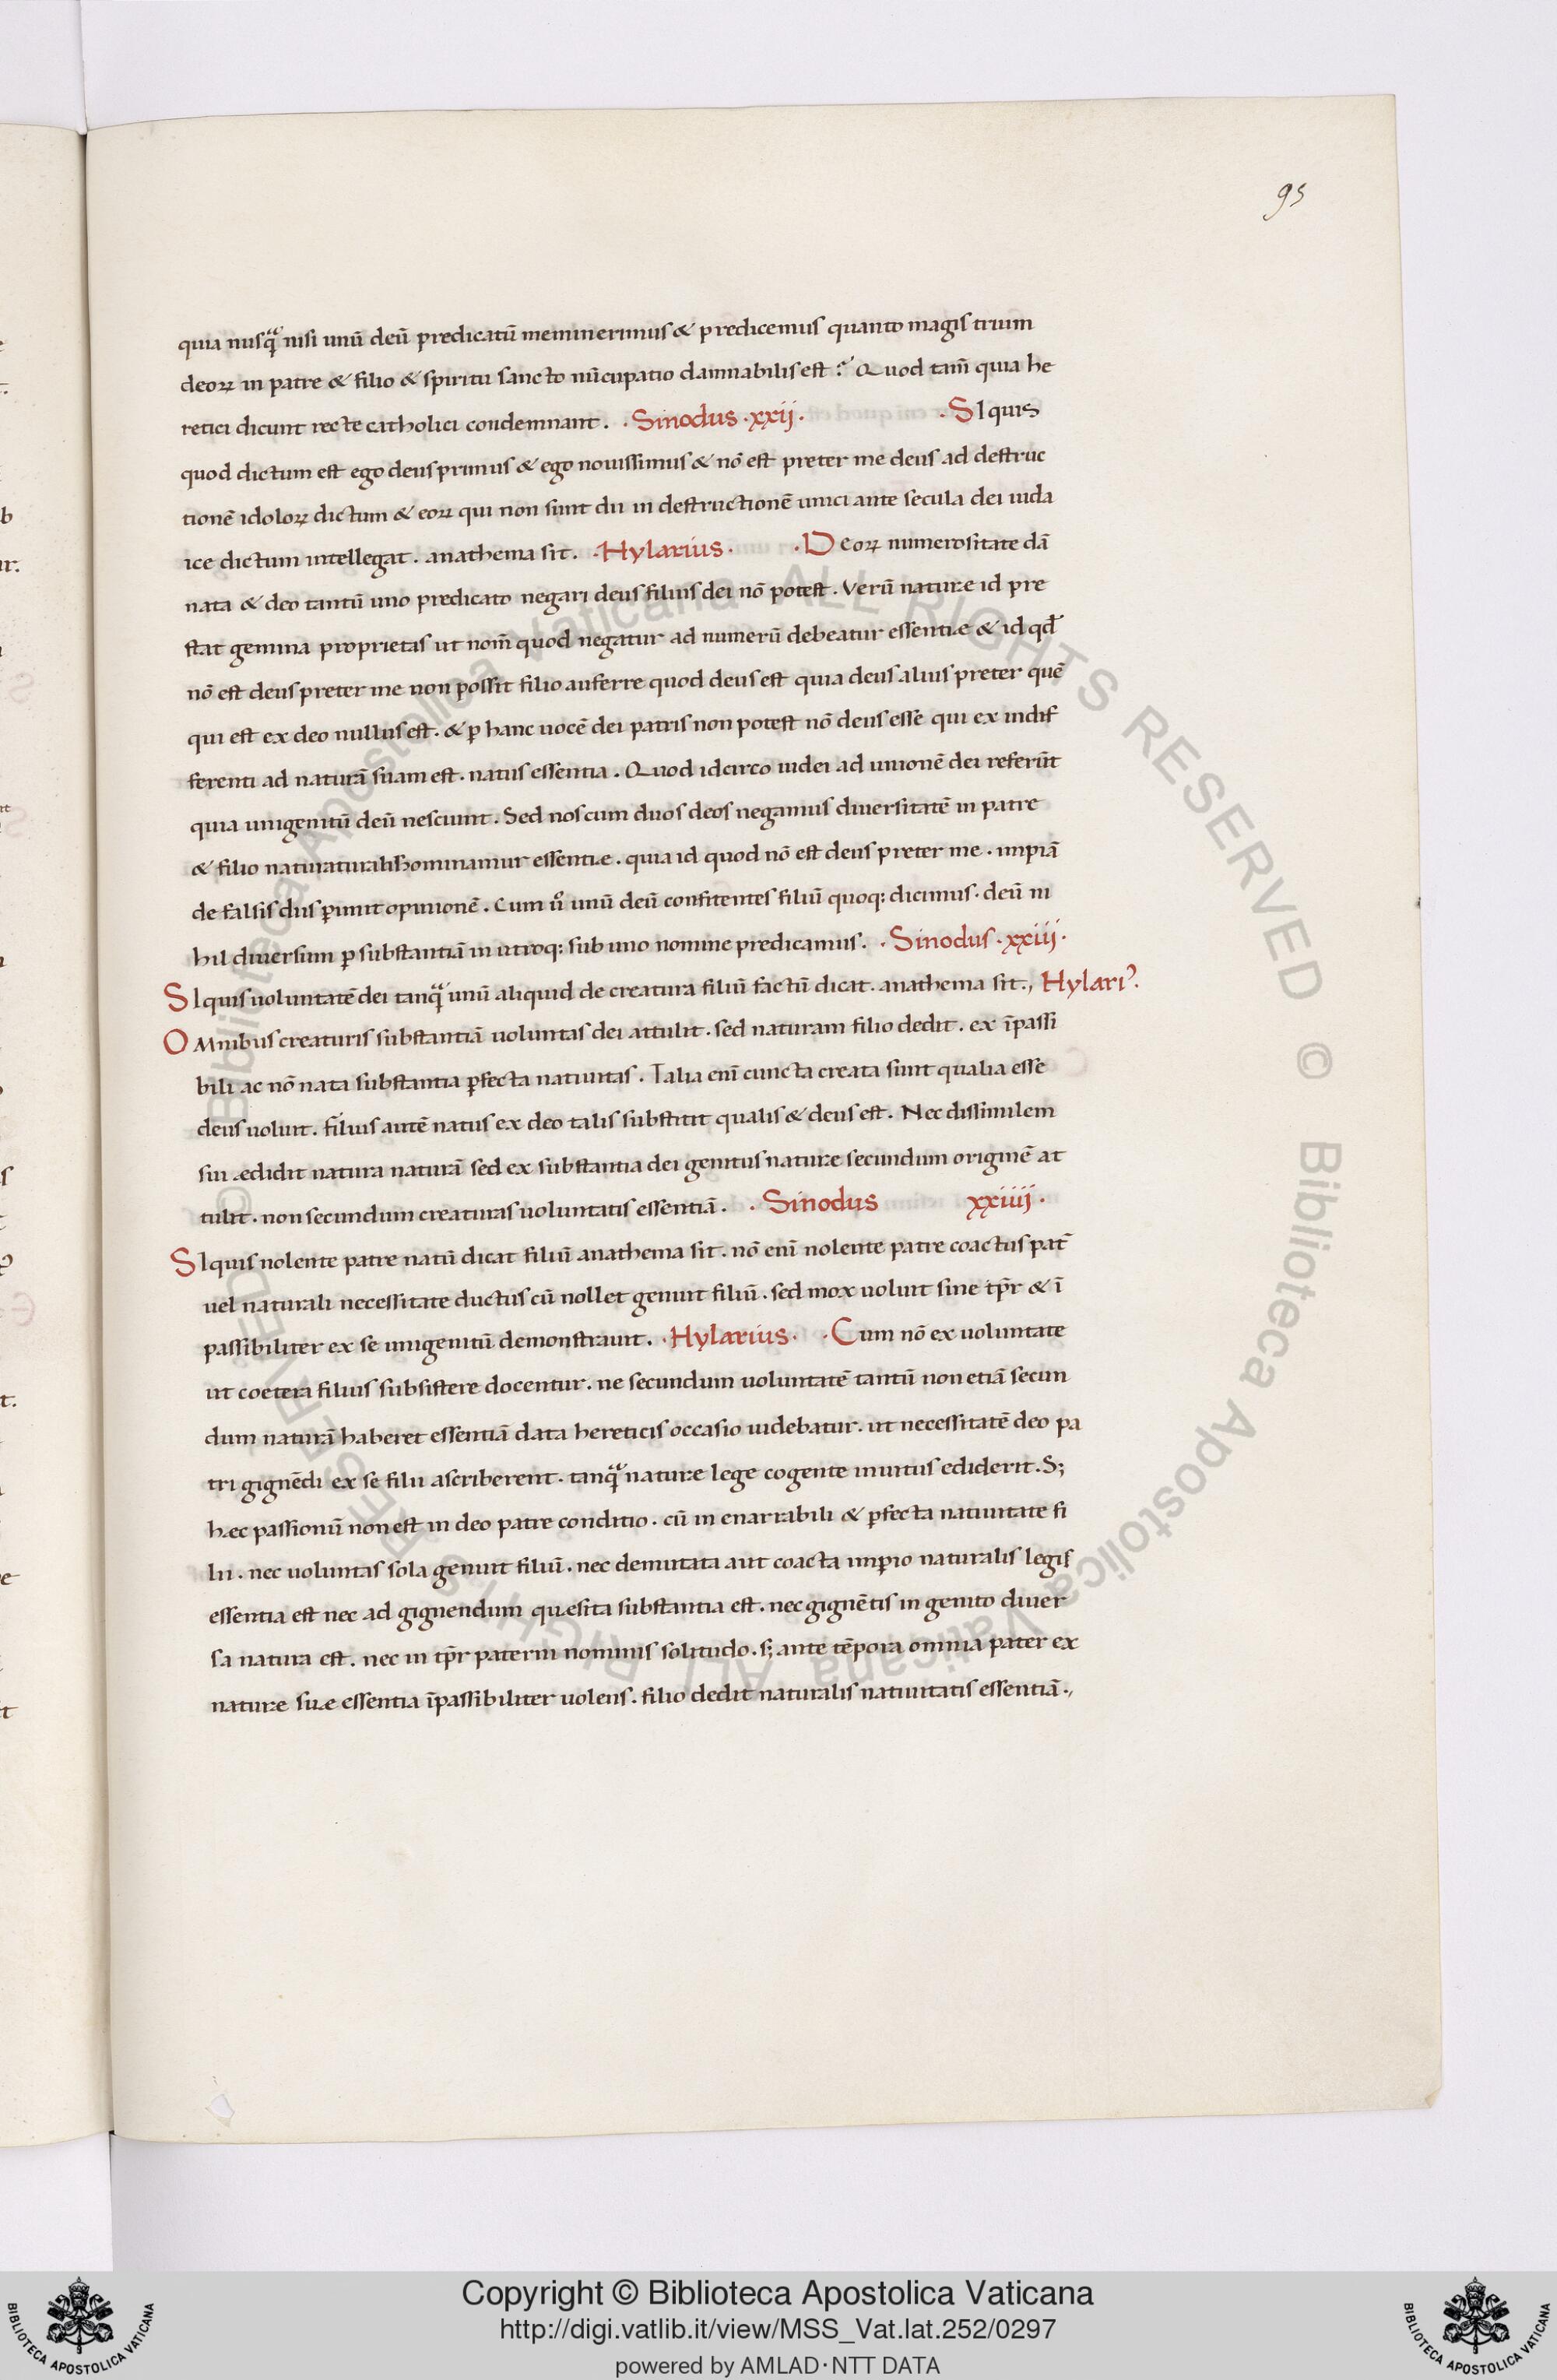 95
quia nusqᵃ nisi unū deū predicatū meminerimus & predicemus quanto magis trium
deoꝝ in patre & filio & spiritu sancto nūcupatio damnabilis est? Quod tam̄ quia he
retici dicunt recte catholici condemnant. · Sinodus · xxij · · SI quis
quod dictum est ego deus primus & ego nouissimus & nō est preter me deus ad destruc
tionē idoloꝝ dictum & eoꝝ qui non sunt dii in destructionē unici ante secula dei iuda
ice dictum intellegat. anathema sit. · Hylarius · · Deoꝝ numerositate dā
nata & deo tantū uno predicato negari deus filius dei nō potest. Verū naturæ id pre
stat gemina proprietas ut nom̄ quod negatur ad numerū debeatur essentiæ & id qđ
nō est deus preter me non possit filio auferre quod deus est quia deus alius preter quē
qui est ex deo nullus est. & ꝑ hanc uocē dei patris non potest nō deus esse qui ex indif
ferenti ad naturā suam est. natus essentia. Quod idcirco iudei ad unionē dei referūt
quia unigenitū deū nesciunt. Sed nos cum duos deos negamus diuersitatē in patre
& filio essentiæ. quia id quod nō est deus preter me. impiā
de falsis diis ꝑimit opinionē. Cum u̅o unū deū confitentes filiū quoq: dicimus. deū ni
hil diuersum ꝑ substantiā in utroq: sub uno nomine predicamus. · Sinodus · xxiij ·
SI quis uoluntatē dei tanqᵃ unū aliquid de creatura filiū factū dicat. anathema sit., Hylariꝰ.
OMnibus creaturis substantiā uoluntas dei attulit. sed naturam filio dedit. ex īpassi
bili ac nō nata substantia ꝑfecta natiuitas. Talia enī cuncta creata sunt qualia esse
deus uoluit. filius autē natus ex deo talis substitit qualis & deus est. Nec dissimilem
sui ædidit natura naturā sed ex substantia dei genitus naturæ secundum originē at
tulit. non secundum creaturas uoluntatis essentiā. · Sinodus xxiiij ·
SI quis nolente patre natū dicat filiū anathema sit. nō enī nolente patre coactus pat̄
uel naturali necessitate ductus cū nollet genuit filiū. sed mox uoluit sine tp̄r & ī
passibiliter ex se unigenitū demonstrauit. · Hylarius · · Cum nō ex uoluntate
ut coetera filius subsistere docentur. ne secundum uoluntatē tantū non etiā secun
dum naturā haberet essentiā data hereticis occasio uidebatur. ut necessitatē deo pa
tri gignēdi ex se filii ascriberent. tanqᵃ naturæ lege cogente inuitus ediderit. S;
hæc passionū non est in deo patre conditio. cū in enarrabili & ꝑfecta natiuitate fi
lii. nec uoluntas sola genuit filiū. nec demutata aut coacta imꝑio naturalis legis
essentia est nec ad gignendum quæsita substantia est. nec gignētis in genito diuer
sa natura est. nec in tp̄r paterni nominis solitudo. s; ante tēpora omnia pater ex
naturæ suæ essentia īpassibiliter uolens. filio dedit naturalis natiuitatis essentiā.,
Copyright © Biblioteca Apostolica Vaticana
http://digi.vatlib.it/view/MSS_Vat.lat.252/0297
powered by AMLAD·NTT DATA